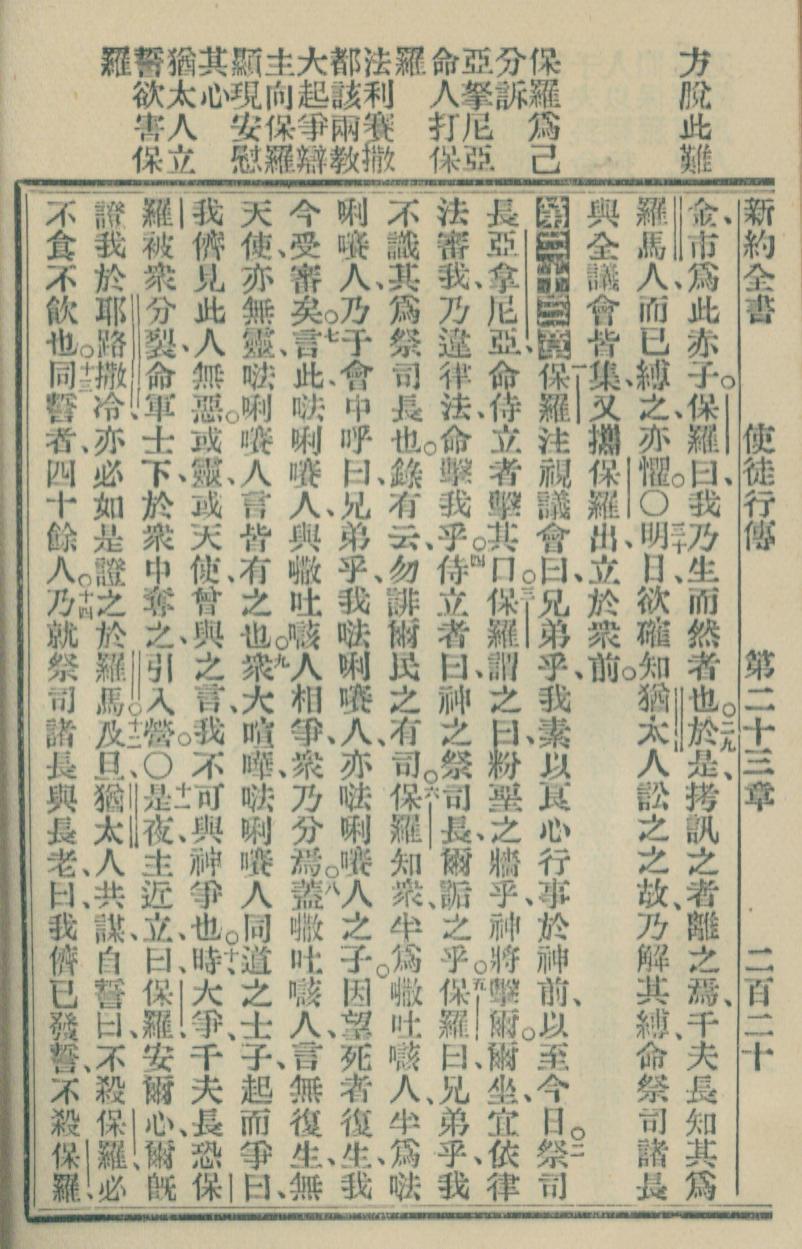 新約全書　使徒行傳　第二十三章　二百二十
方脫此難
保羅爲己
分訴
亞拏尼亞
命人打保
羅
法利賽撒
都該兩教
大起爭辯
主向保羅
顯現安慰
其心
猶太人立
誓欲害保
羅
金、市爲此、赤子。保羅曰、我乃生而然者也。二九於是、拷訊之者離之焉、千夫長知其爲
羅馬人、而已縛之、亦懼。〇三十明日、欲確知猶太人訟之之故、乃解其縛、命祭司諸長
與全議會皆集、又攜保羅出、立於衆前。
第二十三章一保羅注視議會曰、兄弟乎、我素以良心行事於神前、以至今日。二祭司
長亞拿尼亞、命侍立者擊其口。三保羅謂之曰、粉堊之牆乎、神將擊爾。爾坐、宜依律
法審我、乃違律法、命擊我乎。四侍立者曰、神之祭司長、爾詬之乎。五保羅曰、兄弟乎、我
不識其爲祭司長也。錄有云、勿誹爾民之有司。六保羅知衆、半爲𠾖吐㖡人、半爲㳒
唎㘔人、乃于會中呼曰、兄弟乎、我㳒唎㘔人、亦㳒唎㘔人之子。因望死者復生、我
今受審矣。七言此、㳒唎㘔人、與𠾖吐㖡人相爭、衆乃分焉。八蓋𠾖吐㖡人、言無復生、無
天使、亦無靈、㳒唎㘔人言皆有之也。九衆大喧嘩、㳒唎㘔人同道之士子、起而爭曰、
我儕見此人無惡。或靈、或天使、曾與之言、我不可與神爭也。十時、大爭、千夫長恐保
羅被衆分裂、命軍士下、於衆中奪之、引入營。〇十一是夜、主近立、曰、保羅安爾心、爾旣
證我於耶路撒冷、亦必如是證之於羅馬。十二及旦、猶太人共謀、自誓曰、不殺保羅、必
不食不飲也。十三同誓者、四十餘人。十四乃就祭司諸長與長老、曰、我儕已發誓、不殺保羅、